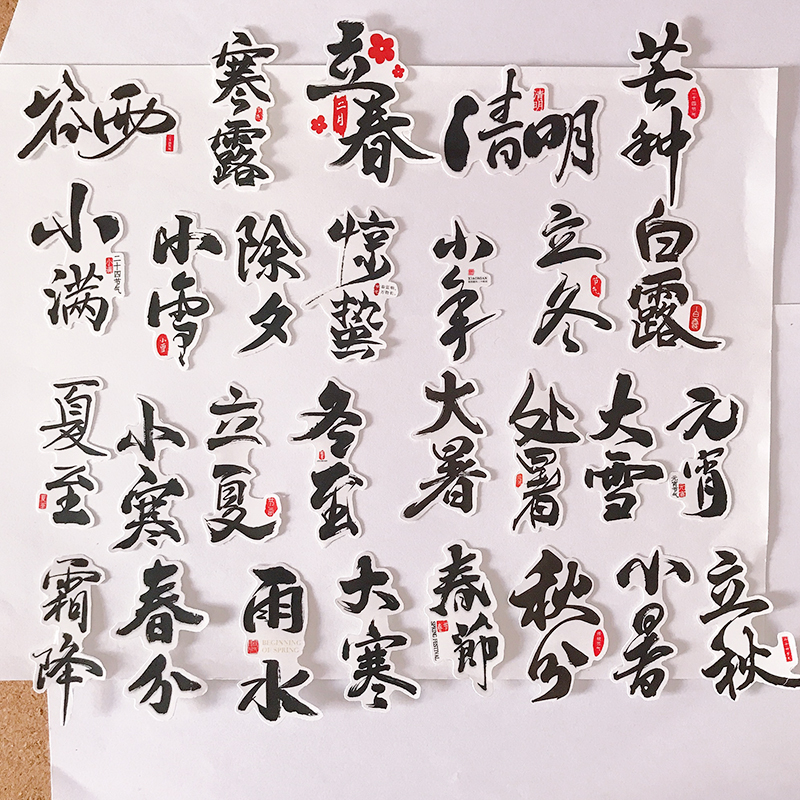 谷雨
寒露
立春
二月
清明
清明
芒种
二十四节气
小满
小满
二十四节气
小雪
小雪
除夕
惊蛰
小年
立冬
节气
白露
白露
夏至
小寒
立夏
冬至
大暑
处暑
大雪
元宵
元宵节气
霜降
春分
雨水
BEGINNING
OF SPRING
大寒
春節
SPRING FESTIVAL
秋分
小暑
立秋